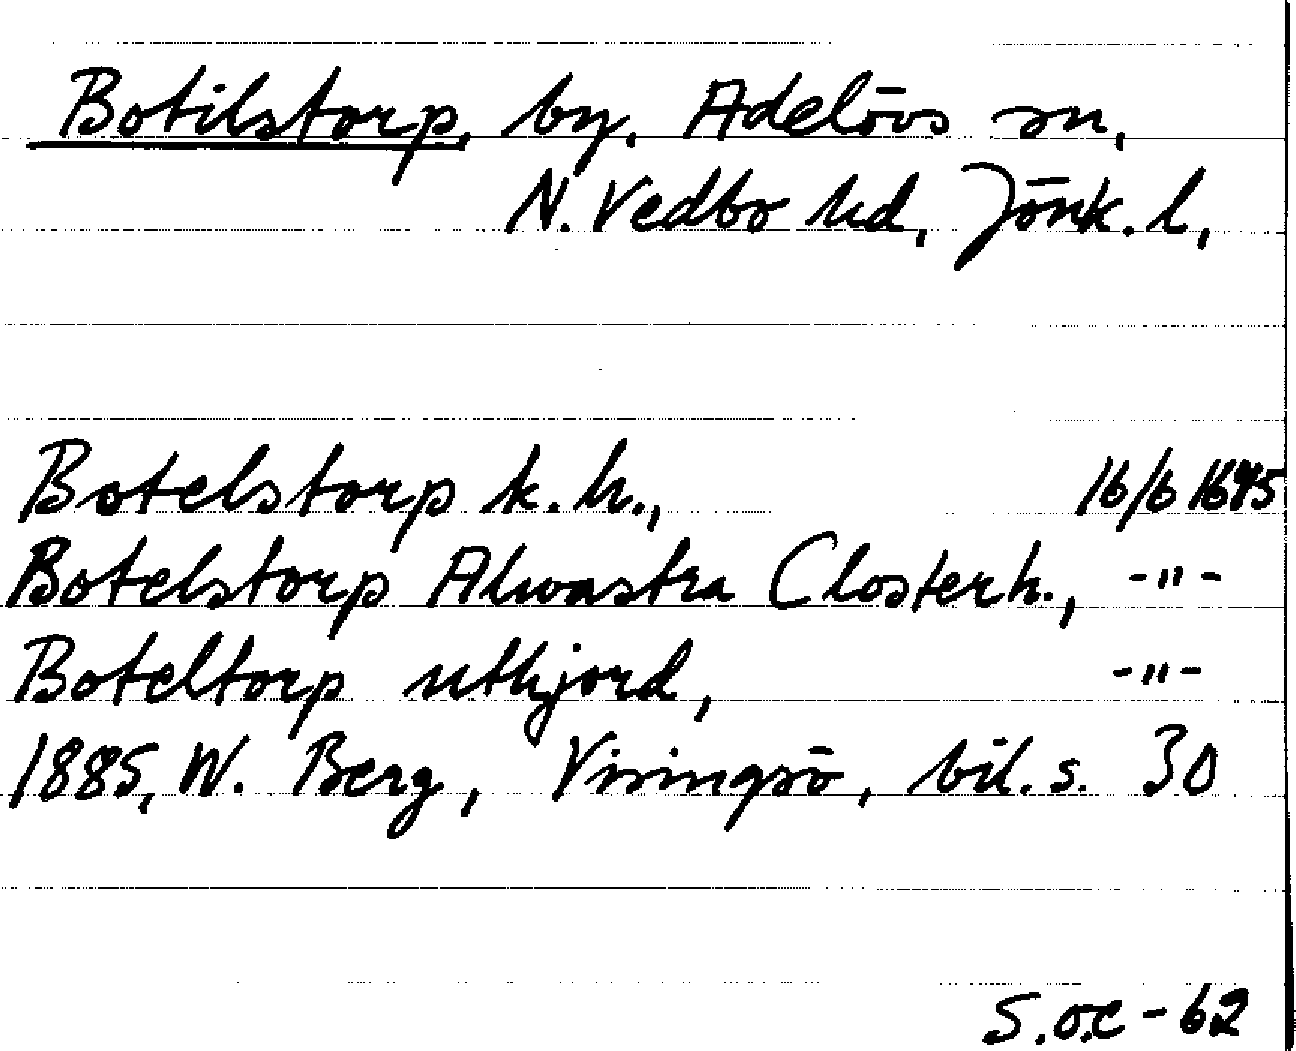 Botilstorp, by. Adelövs sn,
N. Vedbo hd, Jönk. l,
Botelstorp k.h., 16/6 1645
Botelstorp Alwastra Closterh., -"-
Boteltorp uthjord, -"-
1885, W. Berg, Visingsö, bil. s. 30
S.o.c - 62